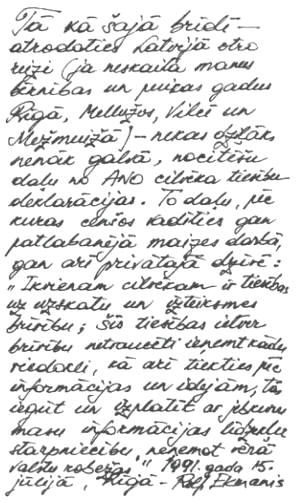 Tā kā šajā brīdī —
atrodoties Latvijā otro
reizi (ja neskaita manus
bērnības un puikas gadus
Rīgā, Mellužos, Vilcē un
Mežmuižā) — nekas
nenāk galvā, nocitēšu
daļu no ANO cilvēka tiesību
deklarācijas. To daļu, pēc
kuras cenšos vadīties gan
patlabanējā maizes darbā,
gan arī privātajā dzīvē:
"Ikvienam cilvēkam ir tiesības
uz uzskatu un izteiksmes
brīvību; šīs tiesības ietver
brīvību netraucēti ieņemt kādu
viedokli, kā arī tiekties pēc
informācijas un idejām, tās
iegūt un izplatīt ar jebkuru
masu informācijas līdzekļu
starpniecību, neņemot vērā
valstu robežas." 1991. gada 15.
jūlijā, Rīgā - Rolf Ekmanis